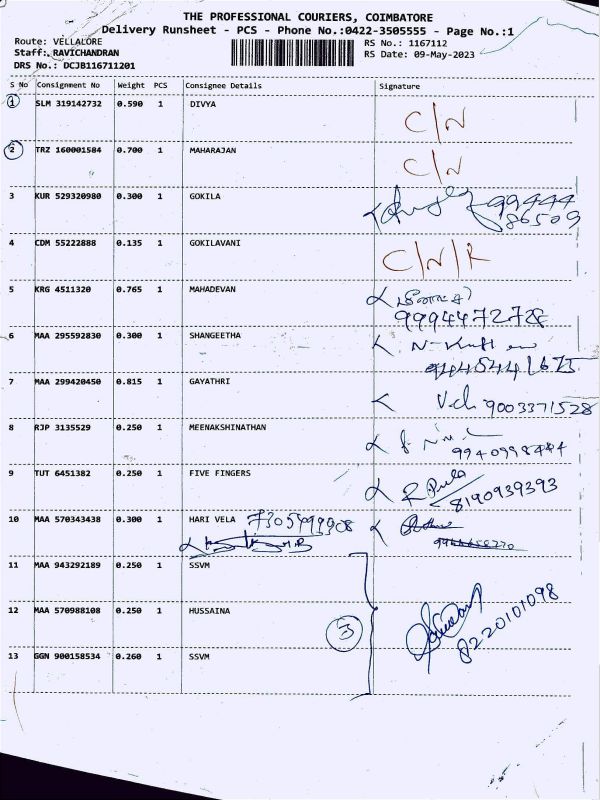 THE PROFESSIONAL COURIERS, COIMBATORE
Delivery Runsheet - PCS - Phone No.:0422-3505555 - Page No.:1
Route: VELLALORE
Staff:. RAVICHANDRAN
DRS No.: DCJB116711201
RS No.: 1167112
RS Date: 09-May-2023
S No Consignment No Weight PCS Consignee Details Signature
1 SLM 319142732 0.590 1 DIVYA C/N
2 TRZ 160001584 0.700 1 MAHARAJAN C/N
3 KUR 529320980 0.300 1 GOKILA 99444
86509
4 CDM 55222888 0.135 1 GOKILAVANI C/N/R
5 KRG 4511320 0.765 1 MAHADEVAN
9994472728
6 MAA 295592830 0.300 1 SHANGEETHA
7 MAA 299420450 0.815 1 GAYATHRI 9003371528
8 RJP 3135529 0.250 1 MEENAKSHINATHAN
9940998444
9 TUT 6451382 0.250 1 FIVE FINGERS
8190939393
10 MAA 570343438 0.300 1 HARI VELA 7305499908
11 MAA 943292189 0.250 1 SSVM
12 MAA 570988108 0.250 1 HUSSAINA
3 8220101098
13 GGN 900158534 0.260 1 SSVM